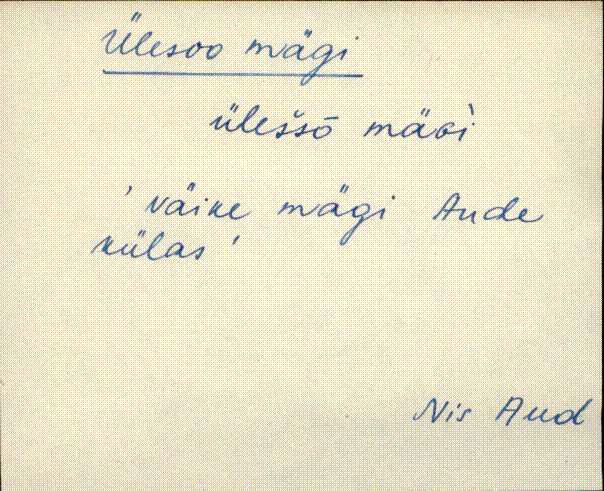 Ülesoo mägi
ülešsō mäGì
' väike mägi Aude
külas '
Nis Aud